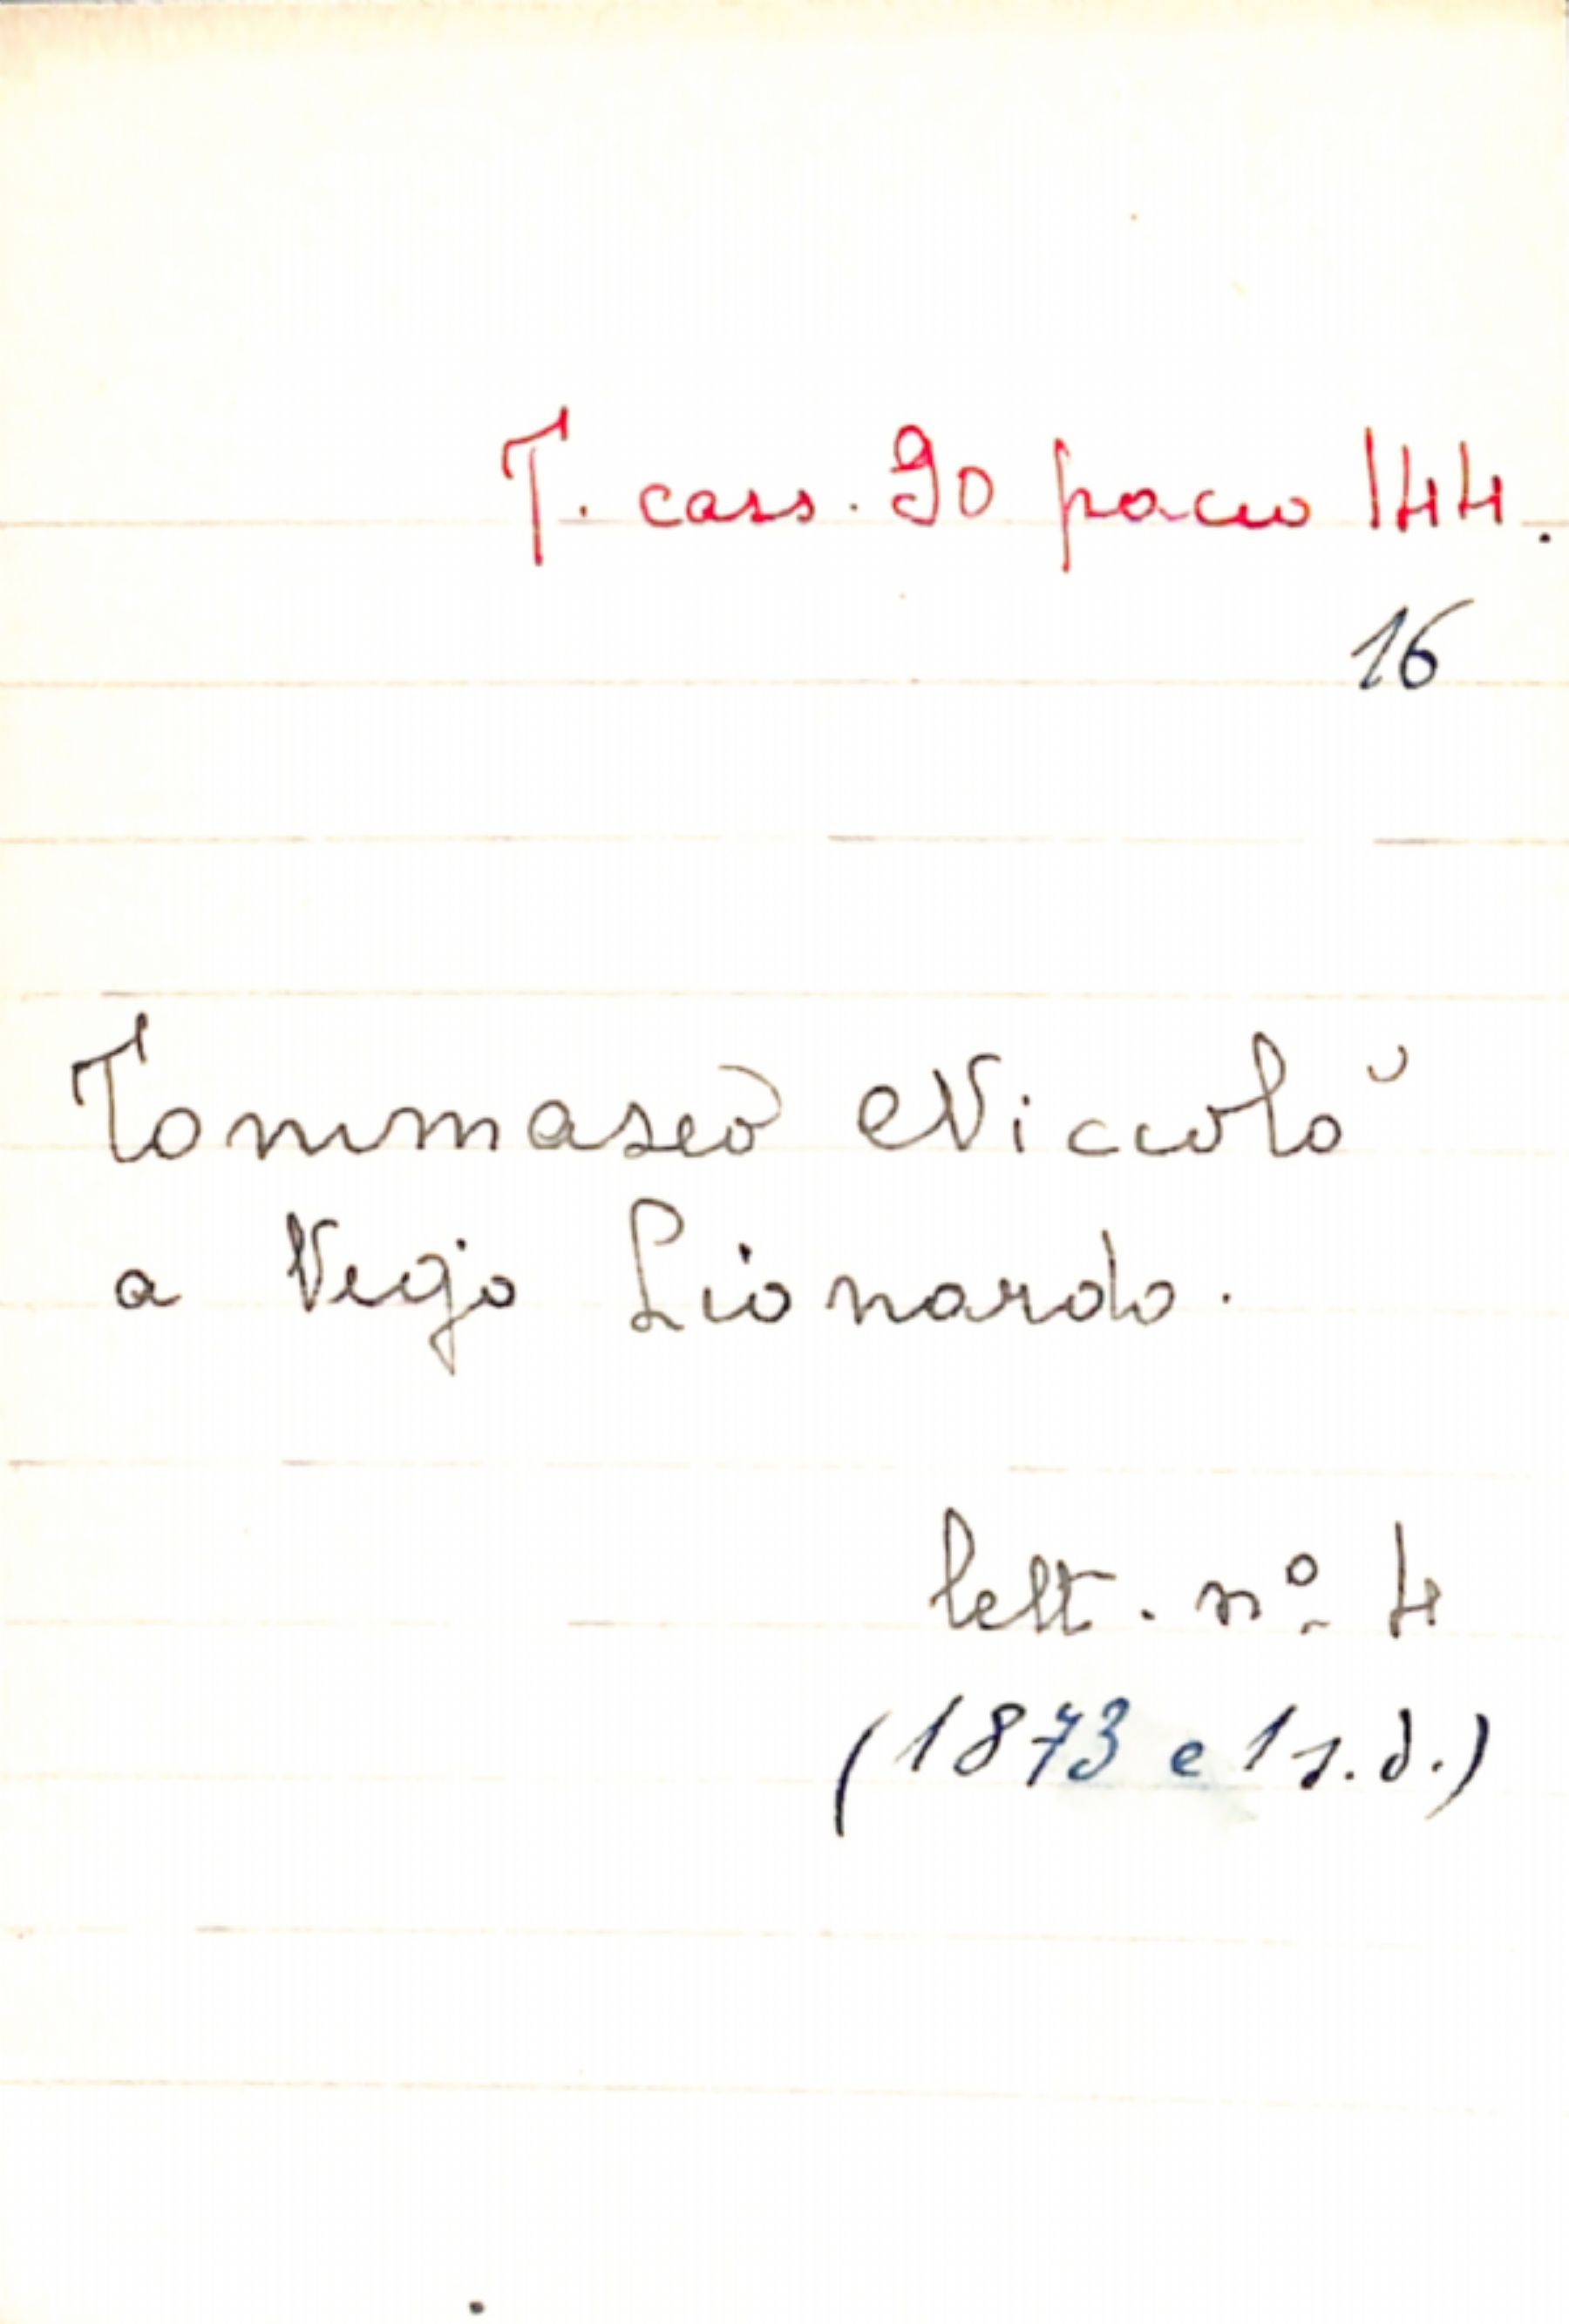 T. cass. 90 pacco 144.
16
Tommaseo Niccolò
a Vigo Lionardo.
lett. nº 4
(1873 e 1 s.d.)